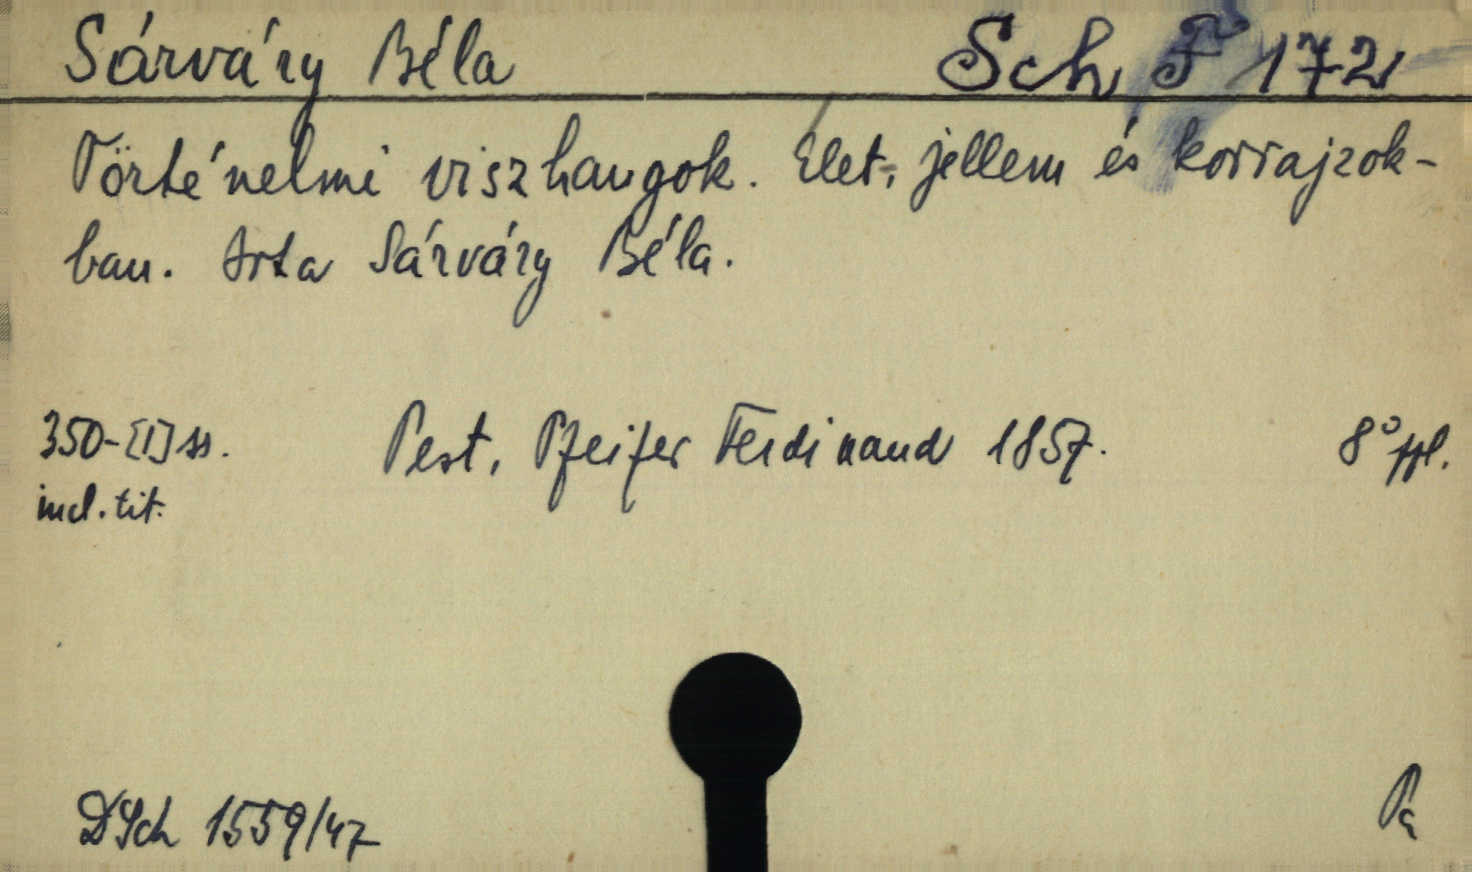 Sárváry Béla Sch F 172
Történelmi viszhangok. Élet, jellem és korrajzok-
ban. Irta Sárváry Béla.
350-[1] ss. Pest, Pfeifer Ferdinand 1857. 8° ppl.
incl. tit.
DSch 1559/47 Pa